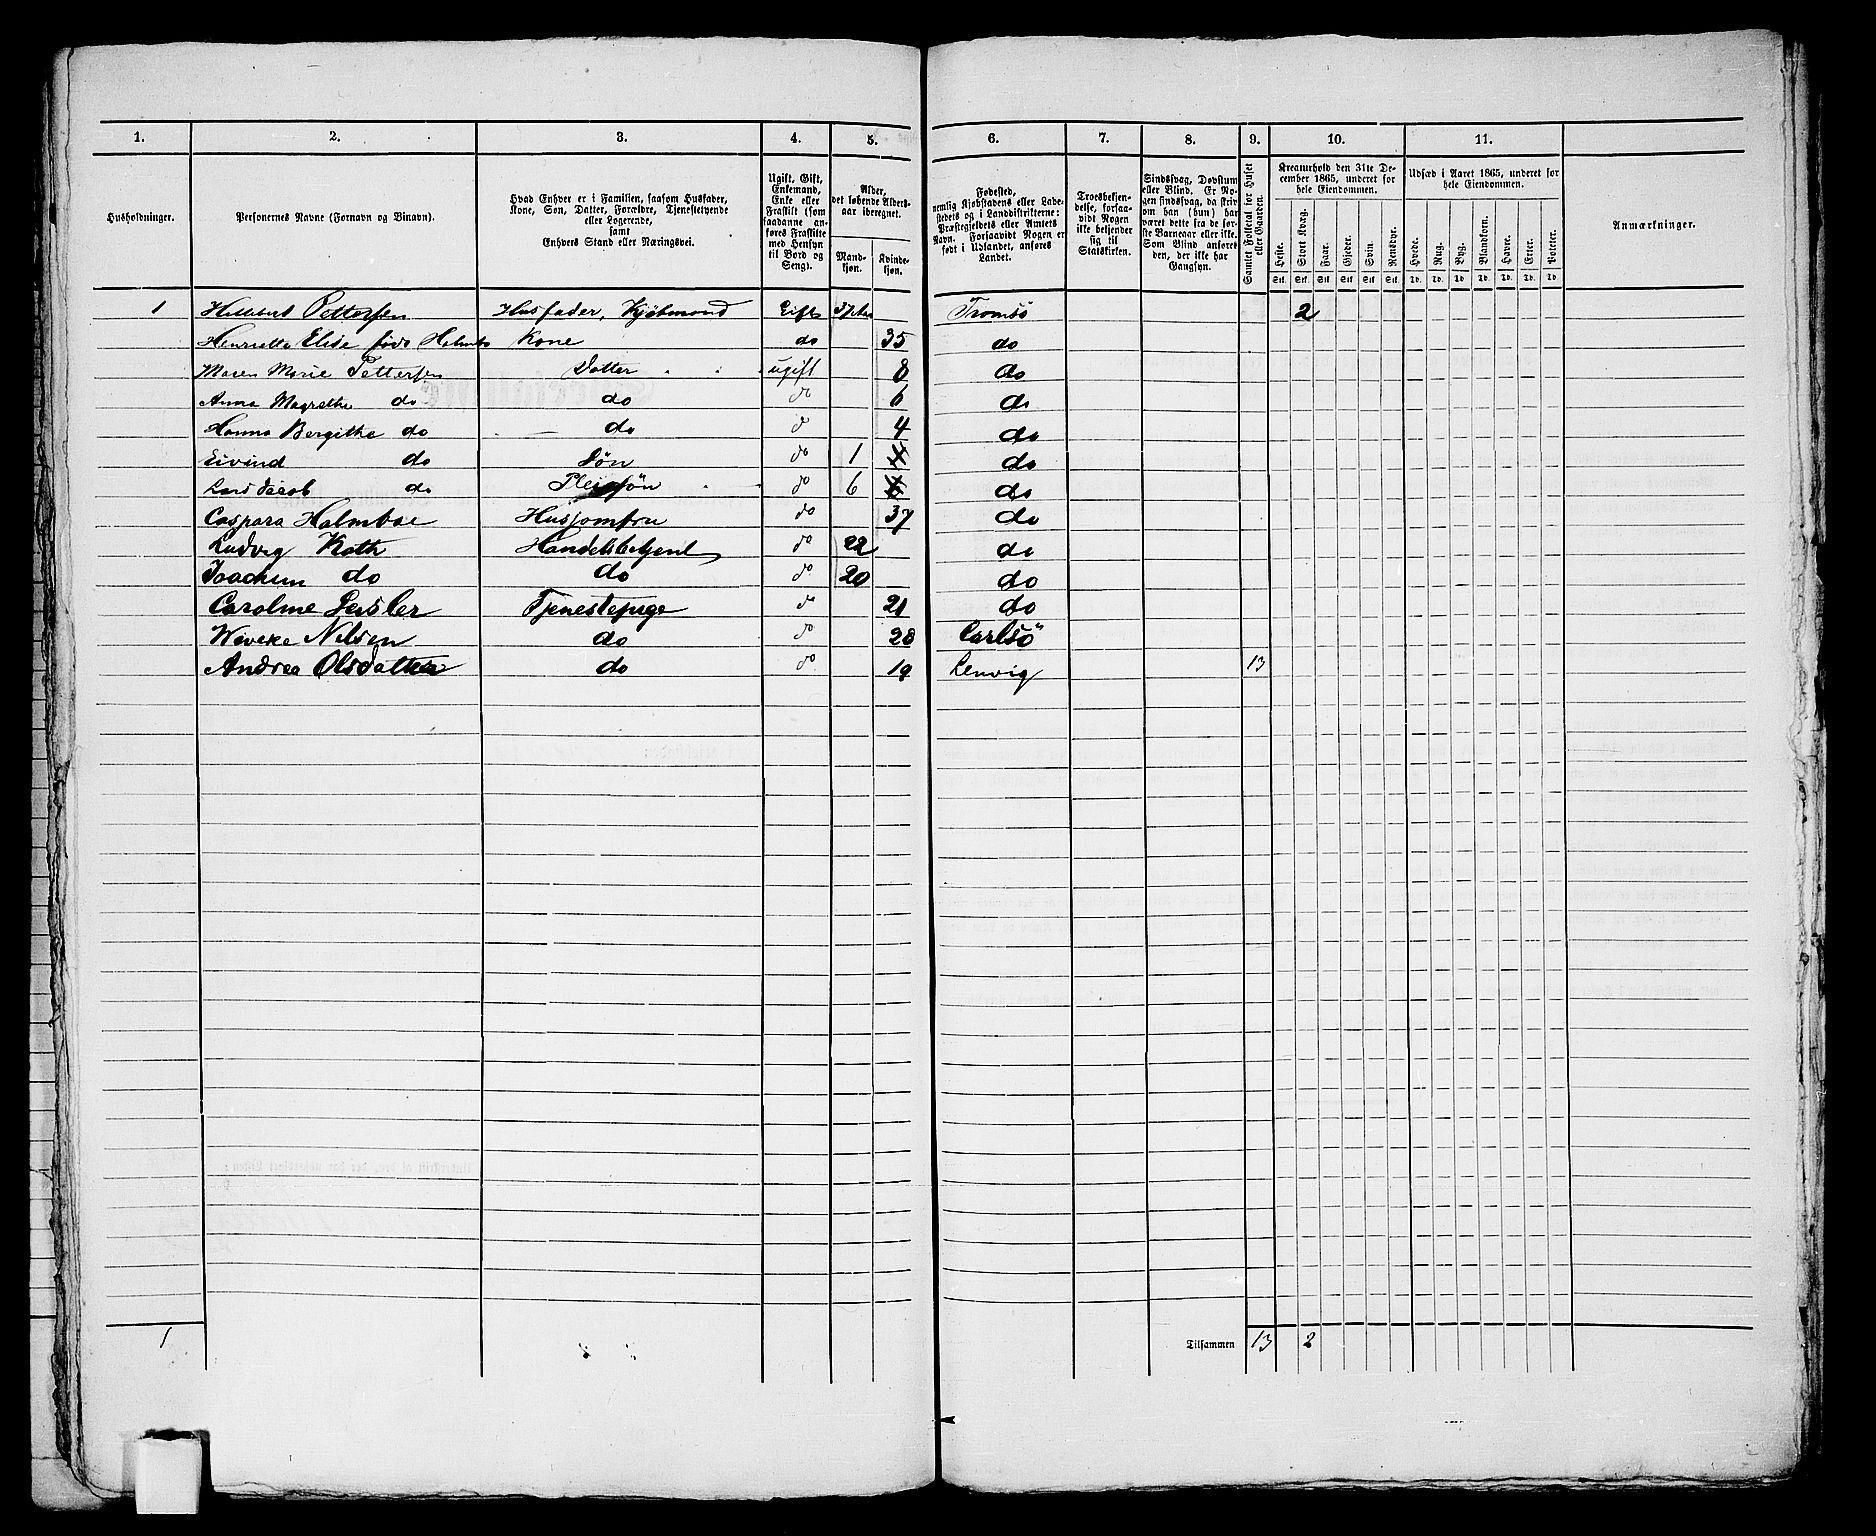 1. 2. 3. 4. 5. 6. 7. 8. 9. 10. 11.
Husholdninger.
Personernes Navne (Fornavn og Binavn).
Hvad Enhver er i Familien, saasom Husfader,
Kone, Søn, Datter, Forældre, Tjenestetyende
eller Logerende,
samt
Enhvers Stand eller Næringsvei.
Ugift, Gift,
Enkemand,
Enke eller
Fraskilt (som
saadanne an-
føres Fraskilte
med Hensyn
til Bord og
Seng).
Alder,
det løbende Alders-
aar iberegnet.
Mand-
kjøn.
Kvinde-
kjøn.
Fødested,
nemlig Kjøbstadens eller Lade-
stedets og i Landdistrikterne:
Præstegjeldets eller Annexets
Navn. Forsaavidt Nogen er
født i Udlandet, anføres
Landet.
Troesbekjen-
delse, forsaa-
vidt Nogen
ikke bekjender
sig til
Statskirken.
Sindssvag, Døvstum
eller Blind. Er No-
gen sindssvag, da skriv
om han (hun) har
været dette fra de før-
ste Barneaar eller ikke.
Som Blind anføres
den, der ikke har
Gangsyn.
Samlet Folketal for Huset
eller Gaarden.
Kreaturhold den 31te De-
cember 1865, underet for
hele Eiendommen.
Heste. Stort Kvæg. Faar. Gjeder. Svin. Rensdyr.
Stk. Stk. Stk. Stk. Stk. Stk.
Udsæd i Aaret 1865, underet for
hele Eiendommen.
Hvede. Rug. Byg. Blandkorn. Havre. Erter. Poteter.
Td. Td. Td. Td. Td. Td. Td.
Anmærkninger.
1 Pettersen Husfader, Kjöbmand Gift 37 Tromsö 2
Henriette Elise född Holmbo Kone do 35 do
Maren Marie Pettersen Datter ugift 8 do
Anna Magrethe do do do 6 do
Hanna Bergitha do do do 4 do
Eivind do Søn do 1 do
Lars Jacob do Pleiesøn do 6 do
Caspara Holmboe Husjomfru do 37 do
Ludvig Koth Handelsbetjent do 22 do
Joachim do do do 20 do
Caroline Tjenestepige do 21 do
Weveke Nilsen do do 28 Carlsö
Andrea Olsdatter do do 19 Lenvig 13
1 Tilsammen 13 2